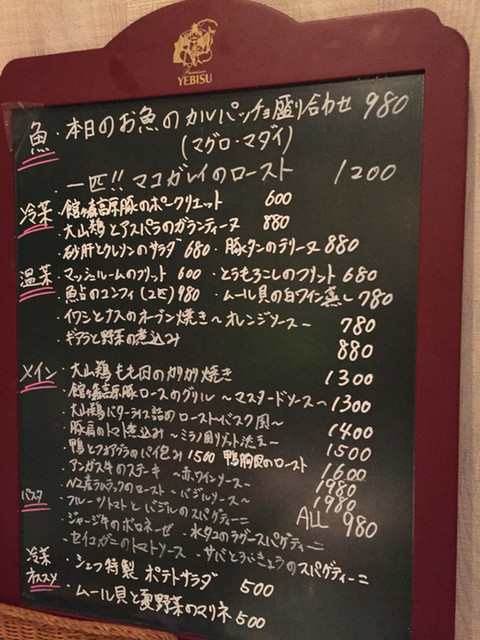 Premium
YEBISU
魚・本日のお魚のカルパッチョ盛り合わせ 980
(マグロ・マダイ)
・一匹!!マコガレイのロースト 1200
冷菜・館ヶ森高原豚のポークリエット 600
・大山鶏とアスパラのガランティーヌ 880
・砂肝とクレソンのサラダ 680 ・豚タンのテリーヌ 880
温菜・マッシュルームのフリット 600 ・とうもろこしのフリット 680
・魚占のコンフィ(2匹) 980 ・ムール貝の白ワイン蒸し 780
・イワシとナスのオーブン焼き〜オレンジソース〜 780
・ギアラと野菜の煮込み 880
メイン・大山鶏もも肉のカリカリ焼き 1300
・館ヶ森高原豚ロースのグリル〜マスタードソース〜 1300
・大山鶏バターライス詰のローストバスク風〜 1400
・豚肩のトマト煮込み〜ミラノ風リゾット添え〜 1500
・鴨とフォアグラのパイ包み 1500 鴨胸肉のロースト 1600
・アンガス牛のステーキ 〜赤ワインソース〜 1980
・NZ産ラムラックのロースト〜バジルソース〜 1980
パスタ・フルーツトマトとバジルのスパゲティーニ ALL 980
・ジャージ牛のボロネーゼ ・水タコのラグースパゲティーニ
・セイコガニのトマトソース ・サバとういきょうのスパゲティーニ
冷菜・シェフ特製 ポテトサラダ 500
オススメ・ムール貝と夏野菜のマリネ 500